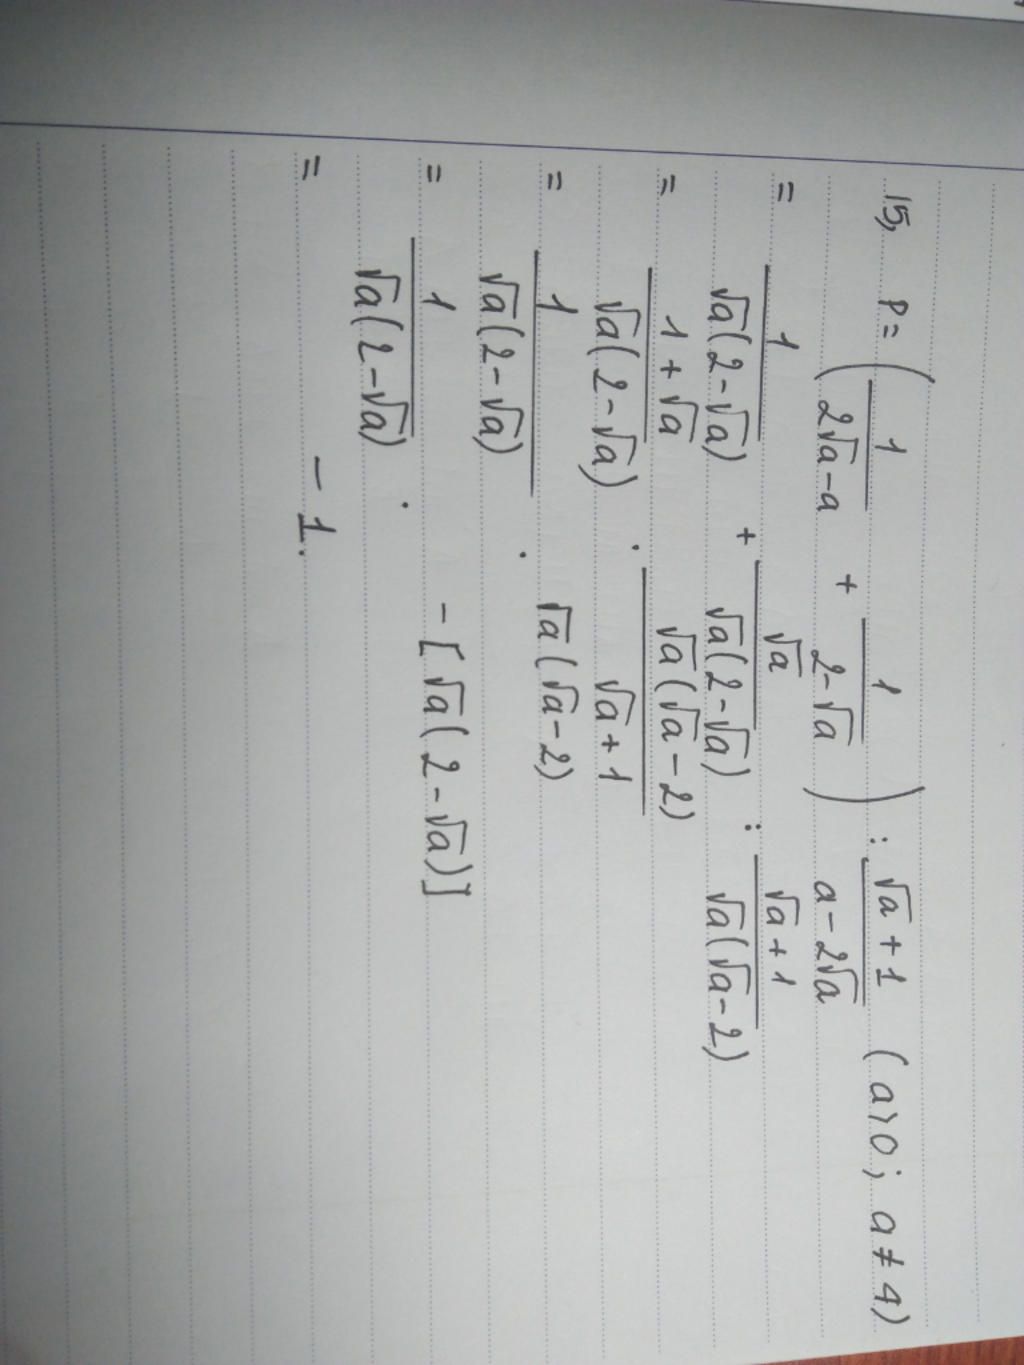 15, P = ( 1/(2√a - a) + 1/(2-√a) ) : (√a + 1)/(a - 2√a) (a>0; a ≠ 4)
= 1/(√a(2-√a)) + √a/(√a(2-√a)) : (√a + 1)/(√a(√a-2))
= (1 + √a)/(√a(2-√a)) . (√a(√a-2))/(√a+1)
= 1/(√a(2-√a)) . √a(√a-2)
= 1/(√a(2-√a)) . -[√a(2-√a)]
= -1.